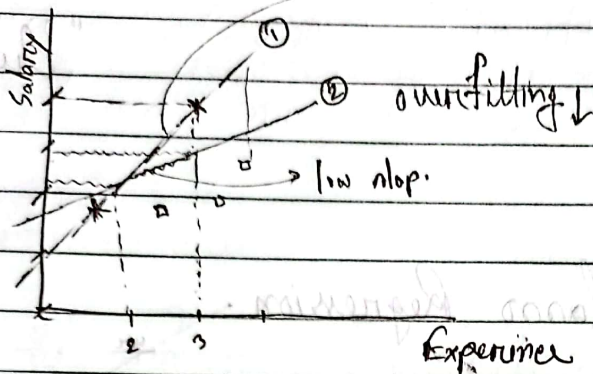 ①
Salary
②
overfitting ↓
low slop.
2 3
Experience